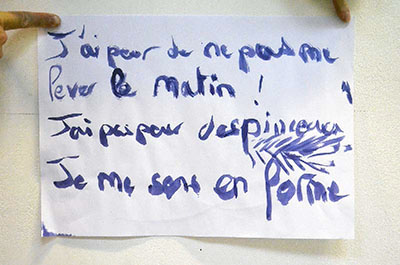 J'ai peur de ne pas me
lever le matin !
J'ai pas peur des pinceaux
Je me sens en forme